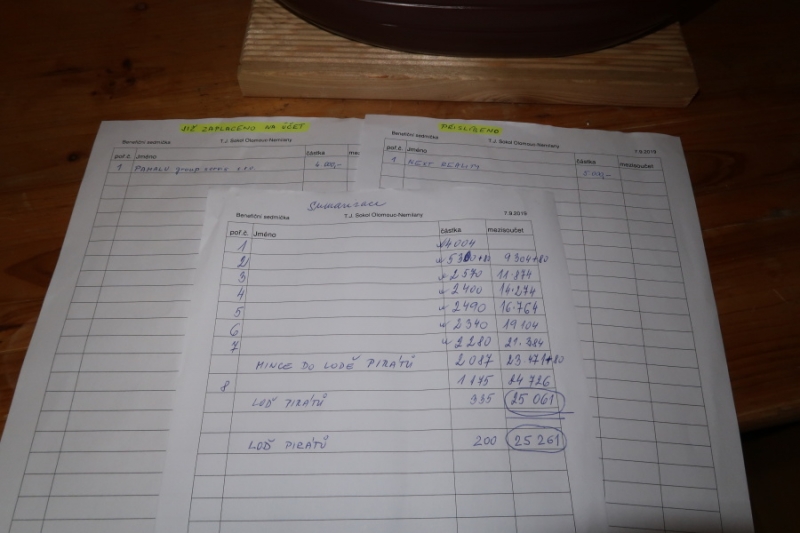 JIŽ ZAPLACENO NA ÚČET
Benefiční sedmička T.J. Sokol Olomouc-Nemilany
poř.č. Jméno částka
1 group s.r.o.
PŘISLÍBENO
Benefiční sedmička 7.9.2019
poř.č. Jméno částka mezisoučet
1 NEXT REALITY 5 000,-
Sumarizace
Benefiční sedmička T.J. Sokol Olomouc-Nemilany 7.9.2019
poř.č. Jméno částka mezisoučet
1 4004
2 9304+80
3 2570 11.874
4 2400 14.274
5 2490 16.764
6 2340 19104
7 2280 21.384
MINCE DO LODĚ PIRÁTŮ 2087 23 471+80
8 1175 24 726
LOĎ PIRÁTŮ 335 25 061
LOĎ PIRÁTŮ 200 25 261